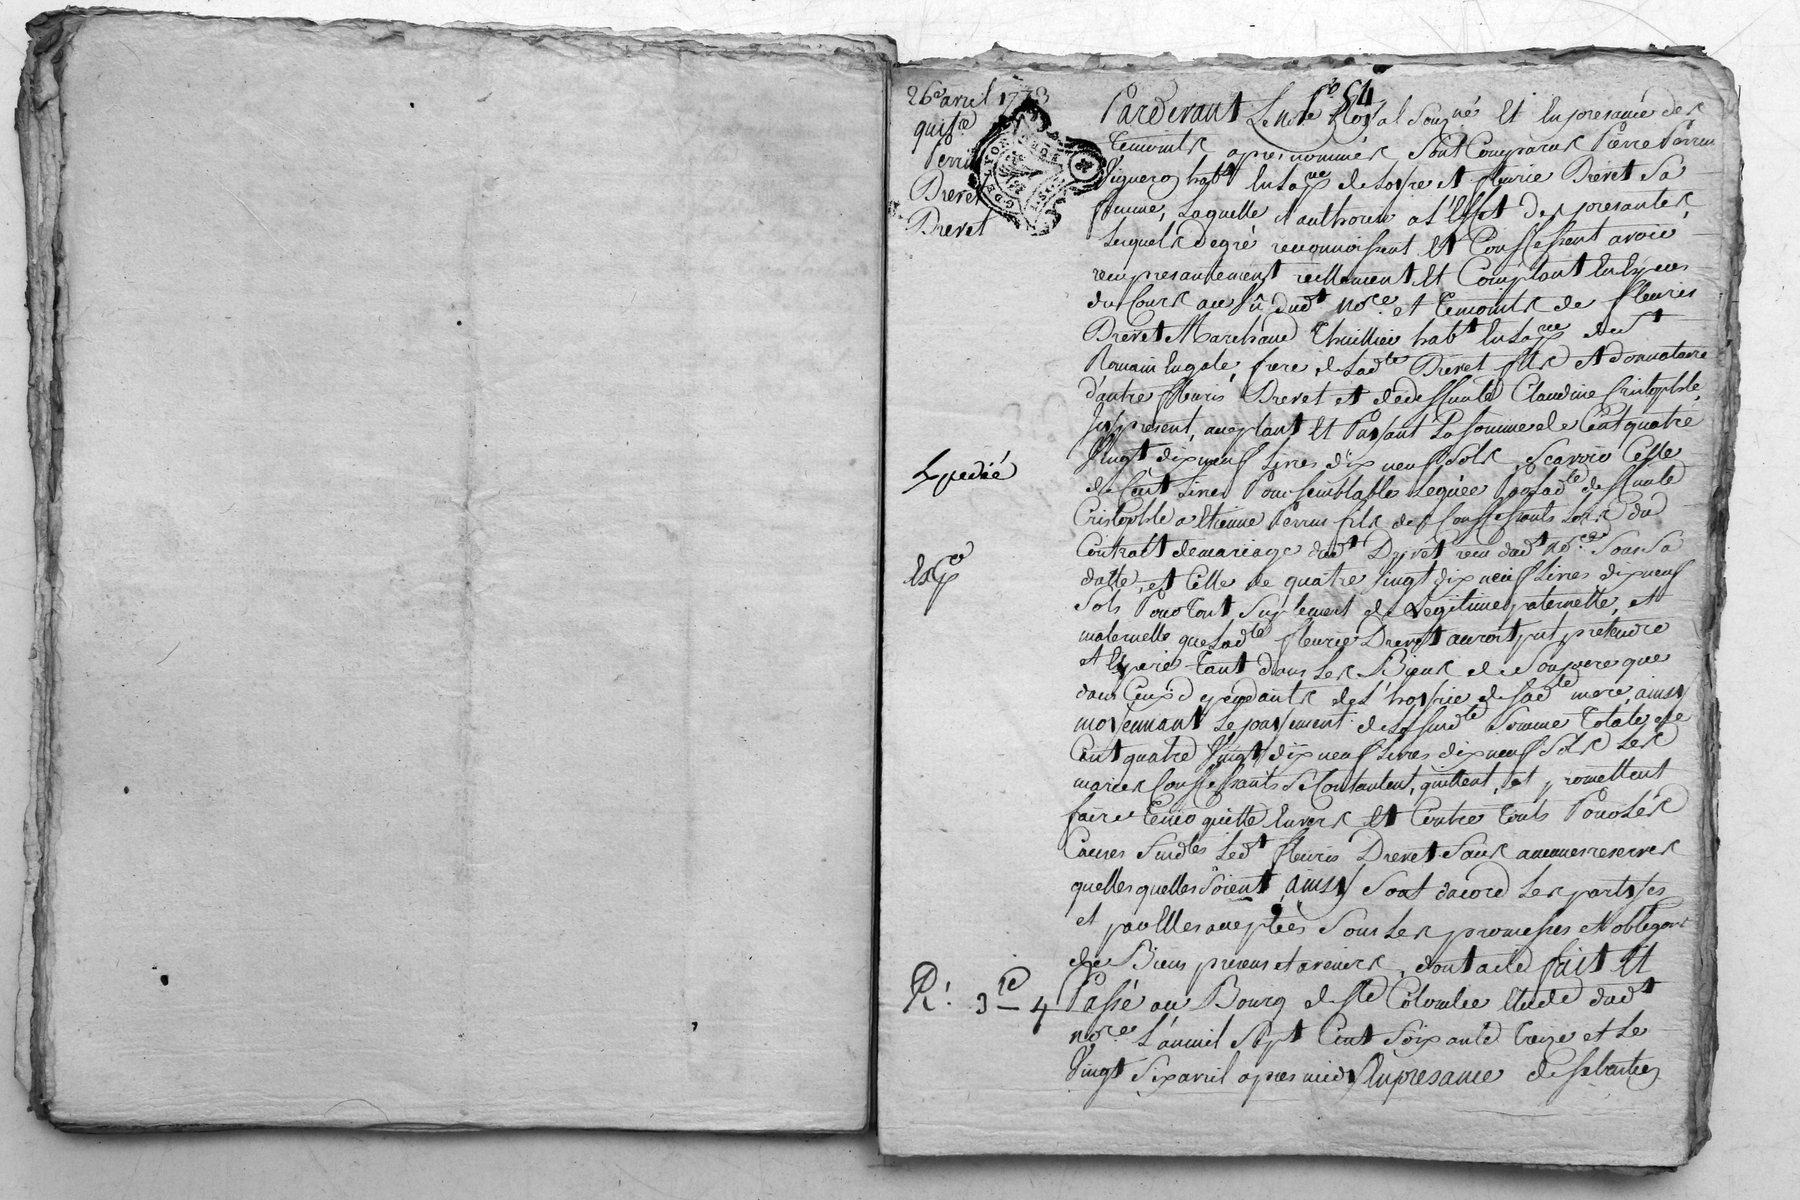 26e avril 1773
quit.ce
Perrin
Drevet
Drevet
f.o 54
Pardevant Le no.re Royal Sousigné Et En presance des
temoints apres nommés, Sont Comparus Pierre Perrin
Vigneron hab.t En La p.sse de et fleurie Drevet Sa
femme, Laquelle il authorise a L'Effet des presantes,
Lesquels de gré reconnoissent Et Confessent avoir
reçu presantement reellement Et Comptant En Especes
du Cours au Vû dud.t no.re et temoints de fleuris
Drevet Marchand Thuillier hab.t En La p.sse de S.t
Romain En gale, frere de Lad.te Drevet fils Et donnataire
d'autre fleuris Drevet et de deffunte Claudine Cristophle,
Jcy present, aceptant Et Payant La Somme de Cent quatre
Vingt dix neuf Livres dix neuf Sols, Scavoir Celle
de Cent Livres Pour Semblable Leguée Par Lad.te deffunte
Cristophle a Etienne Perrin fils des Confessants Lors du
Contrat de mariage dud.t Drevet reçu dud.t no.re Sous Sa
datte, et Celle de quatre Vingt dix neuf Livres dix neuf
Sols Pour tout Suplement de Legitime paternelle, et
maternelle que Lad.te fleurie Drevet auroit put pretendre
et Esperer tant dans Les Biens de Son pere que
dans Ceux dependants de L'hoirie de Sad.te mere, ainsy
moyennant Le payement de La Susd.te Somme totale de
Cent quatre Vingt dix neuf Livres dix neuf Sols Les
mariés Confessants Se Contentent, quittent, et promettent
faire tenir quitte Envers Et Contre touts Pour Les
Causes Susd.es Led.t fleuris Drevet Sans aucunes reserves
quelles quelles Soient, ainsy Sont dacord Les parties
et par Elles aceptées Sous Les promesses Et obligons
de Biens presens et avenirs, dont acte fait Et
Passé au Bourg de S.te Colombe Etude dud.t
no.re L'an mil Sept Cent Soixante Treize et Le
Vingt Six avril apres midy En presance de Sebastien
Expedié
R.